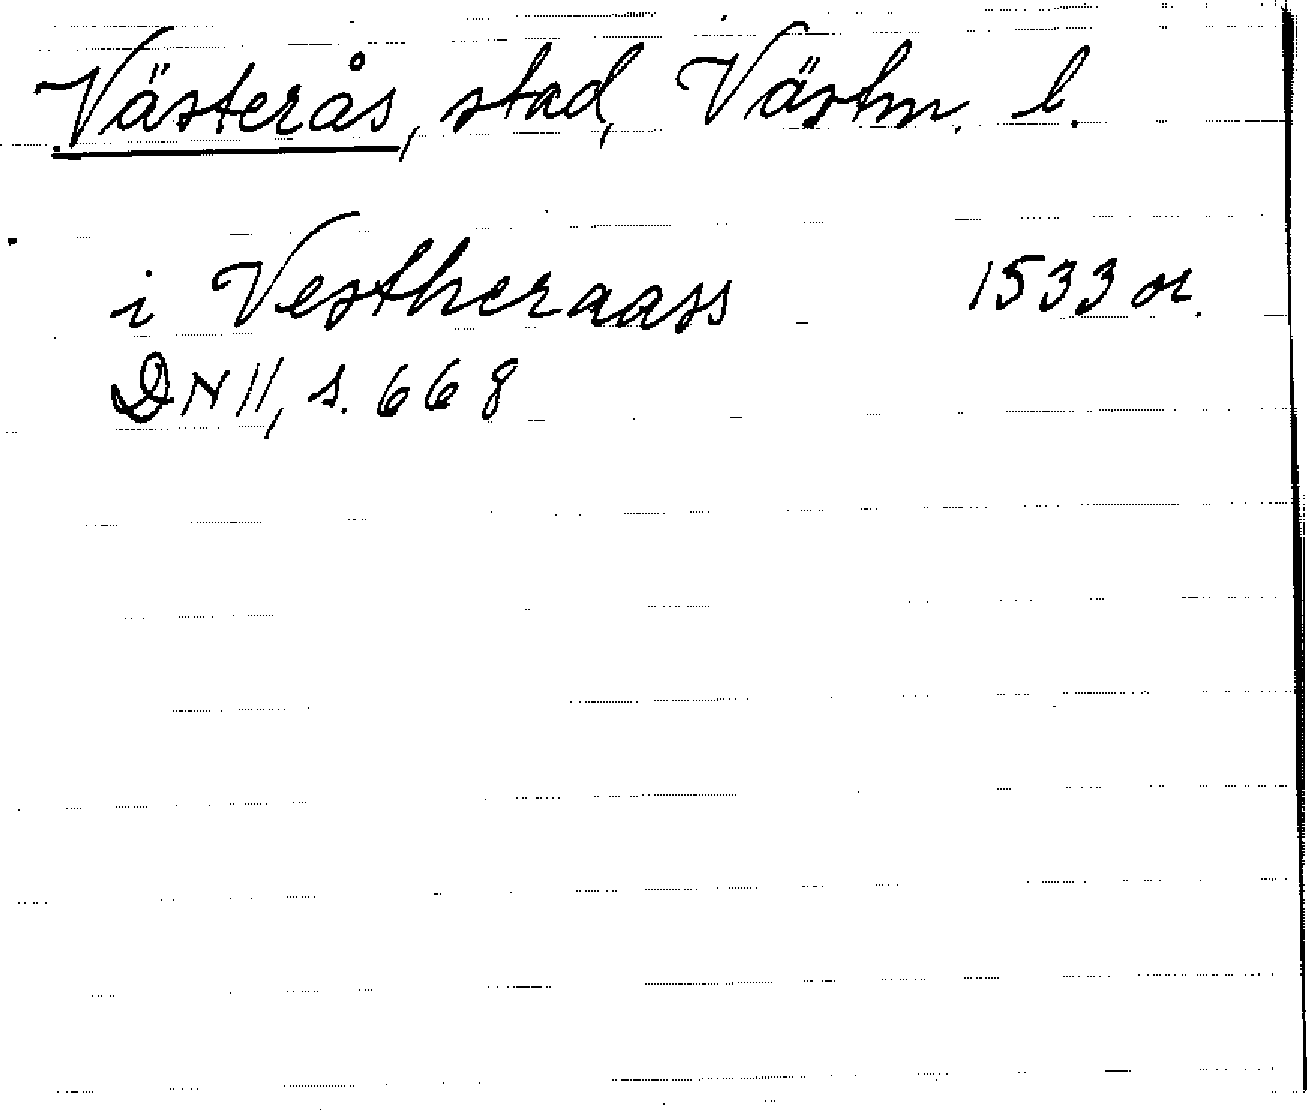 Västerås, stad, Västm. l.
i Vestheraass 1533 or.
DN 11, s. 668